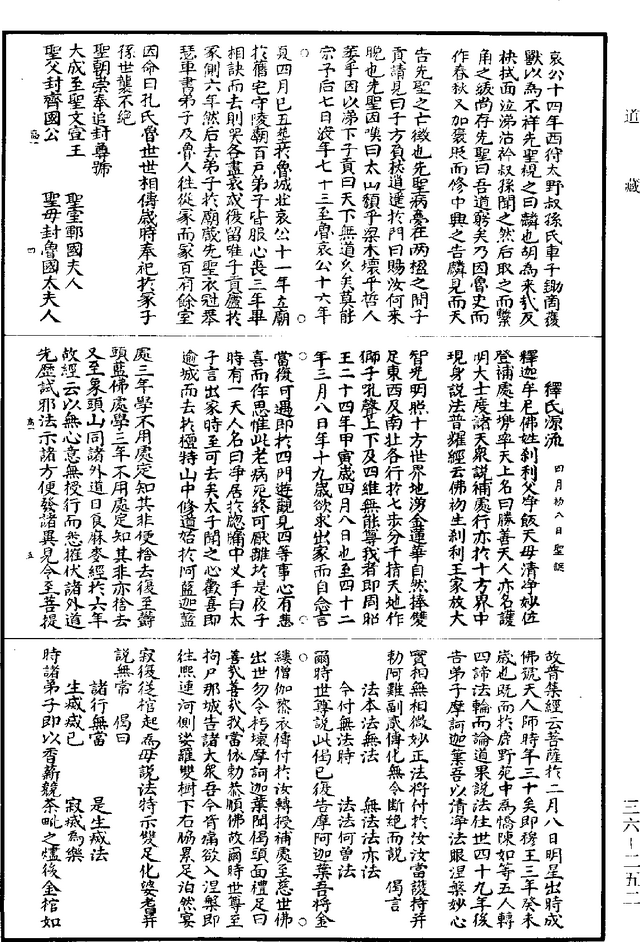 道藏
哀公十四年西狩大野叔孫氏車子鋤商獲
獸以為不祥先聖視之曰麟也胡為來哉反
袂拭面泣涕沾衿叔孫聞之然后取之而繫
角之紱尚存先聖曰吾道窮矣乃因魯史而
作春秋又加褒貶而修中興之告麟見而天
告先聖之亡徵也先聖病夢在兩楹之間子
貢請見曰子方負杖逍遙於門曰賜汝何來
晚也先聖因嘆曰太山頹乎梁木壞乎哲人
萎乎因以涕下子貢曰天下無道久矣莫能
宗予后七日沒年七十三至魯哀公十六年
夏四月已五塟於魯城北哀公十一年立廟
於舊宅守陵廟百戶弟子皆服心喪三年畢
相訣而去則哭各盡哀或復留唯子貢廬於
冢側六年然后去弟子於廟藏先聖衣冠琴
瑟車書弟子及魯人往從家而冢百有餘室
因命曰孔氏魯世世相傳歲時奉祀於冢子
孫世襲不絕
聖朝崇奉追封尊號
大成至聖文宣王　聖室鄆國夫人
聖父封齊國公　聖母封魯國太夫人
釋氏源流　四月初八日聖誕
釋迦牟尼佛姓剎利父淨飯天母清淨妙位
登補處生兜率天上名曰勝善天人亦名護
明大士度諸天衆說補處行亦於十方界中
現身說法普耀經云佛初生剎利王家放大
智光明照十方世界地湧金蓮華自然捧雙
足東西及南北各行於七步分手指天地作
獅子孔聲上下及四維無能尊我者即周昭
王二十四年甲寅歲四月八日也至四十二
年三月八日年十九歲欲求出家而自念言
當復可遇即於四門遊觀見四等事心有悲
喜而作思惟此老病死終可厭離於是夜子
時有一天人名曰淨居於窓牖中叉手白太
子言出家時至可去矣太子聞之心歡喜即
逾城而去於檀特山中修道始於阿藍迦藍
處三年學不用處定知其非便捨去復至欝
頭藍佛處學三年不用處定知其非亦捨去
又至象頭山同諸外道日食麻麥經於六年
故經云以無心意無授行而悉摧伏諸外道
先歷試邪法示諸方便發諸異見令至菩提
故普集經云菩薩於二月八日明星出時成
佛號天人師時年三十矣即穆王三年癸未
歲也既而於鹿野苑中為憍陳如等五人轉
四諦法輪而論道果說法住世四十九年後
告弟子摩訶迦葉吾以清淨法眼涅槃妙心
實相無相微妙正法將付於汝汝當護持并
勑阿難副貳傳化無令斷絕而說　偈言
法本法無法　無法法亦法
今付無法時　法法何曾法
爾時世尊說此偈已復告摩訶迦葉吾將金
縷僧伽黎衣傳付於汝轉授補處至慈世佛
出世勿令朽壞摩訶迦葉聞偈頭面禮足曰
善哉善哉我當依勑恭順佛故爾時世尊至
拘尸那城告諸大衆吾今背痛欲入涅槃即
往熙連河側娑羅雙樹下右脇累足泊然宴
寂復從棺起為母說法特示雙足化婆耆并
說無常　偈曰
諸行無常　是生滅法
生滅滅已　寂滅為樂
時諸弟子即以香薪競茶毗之燼後金棺如
三六-二五二